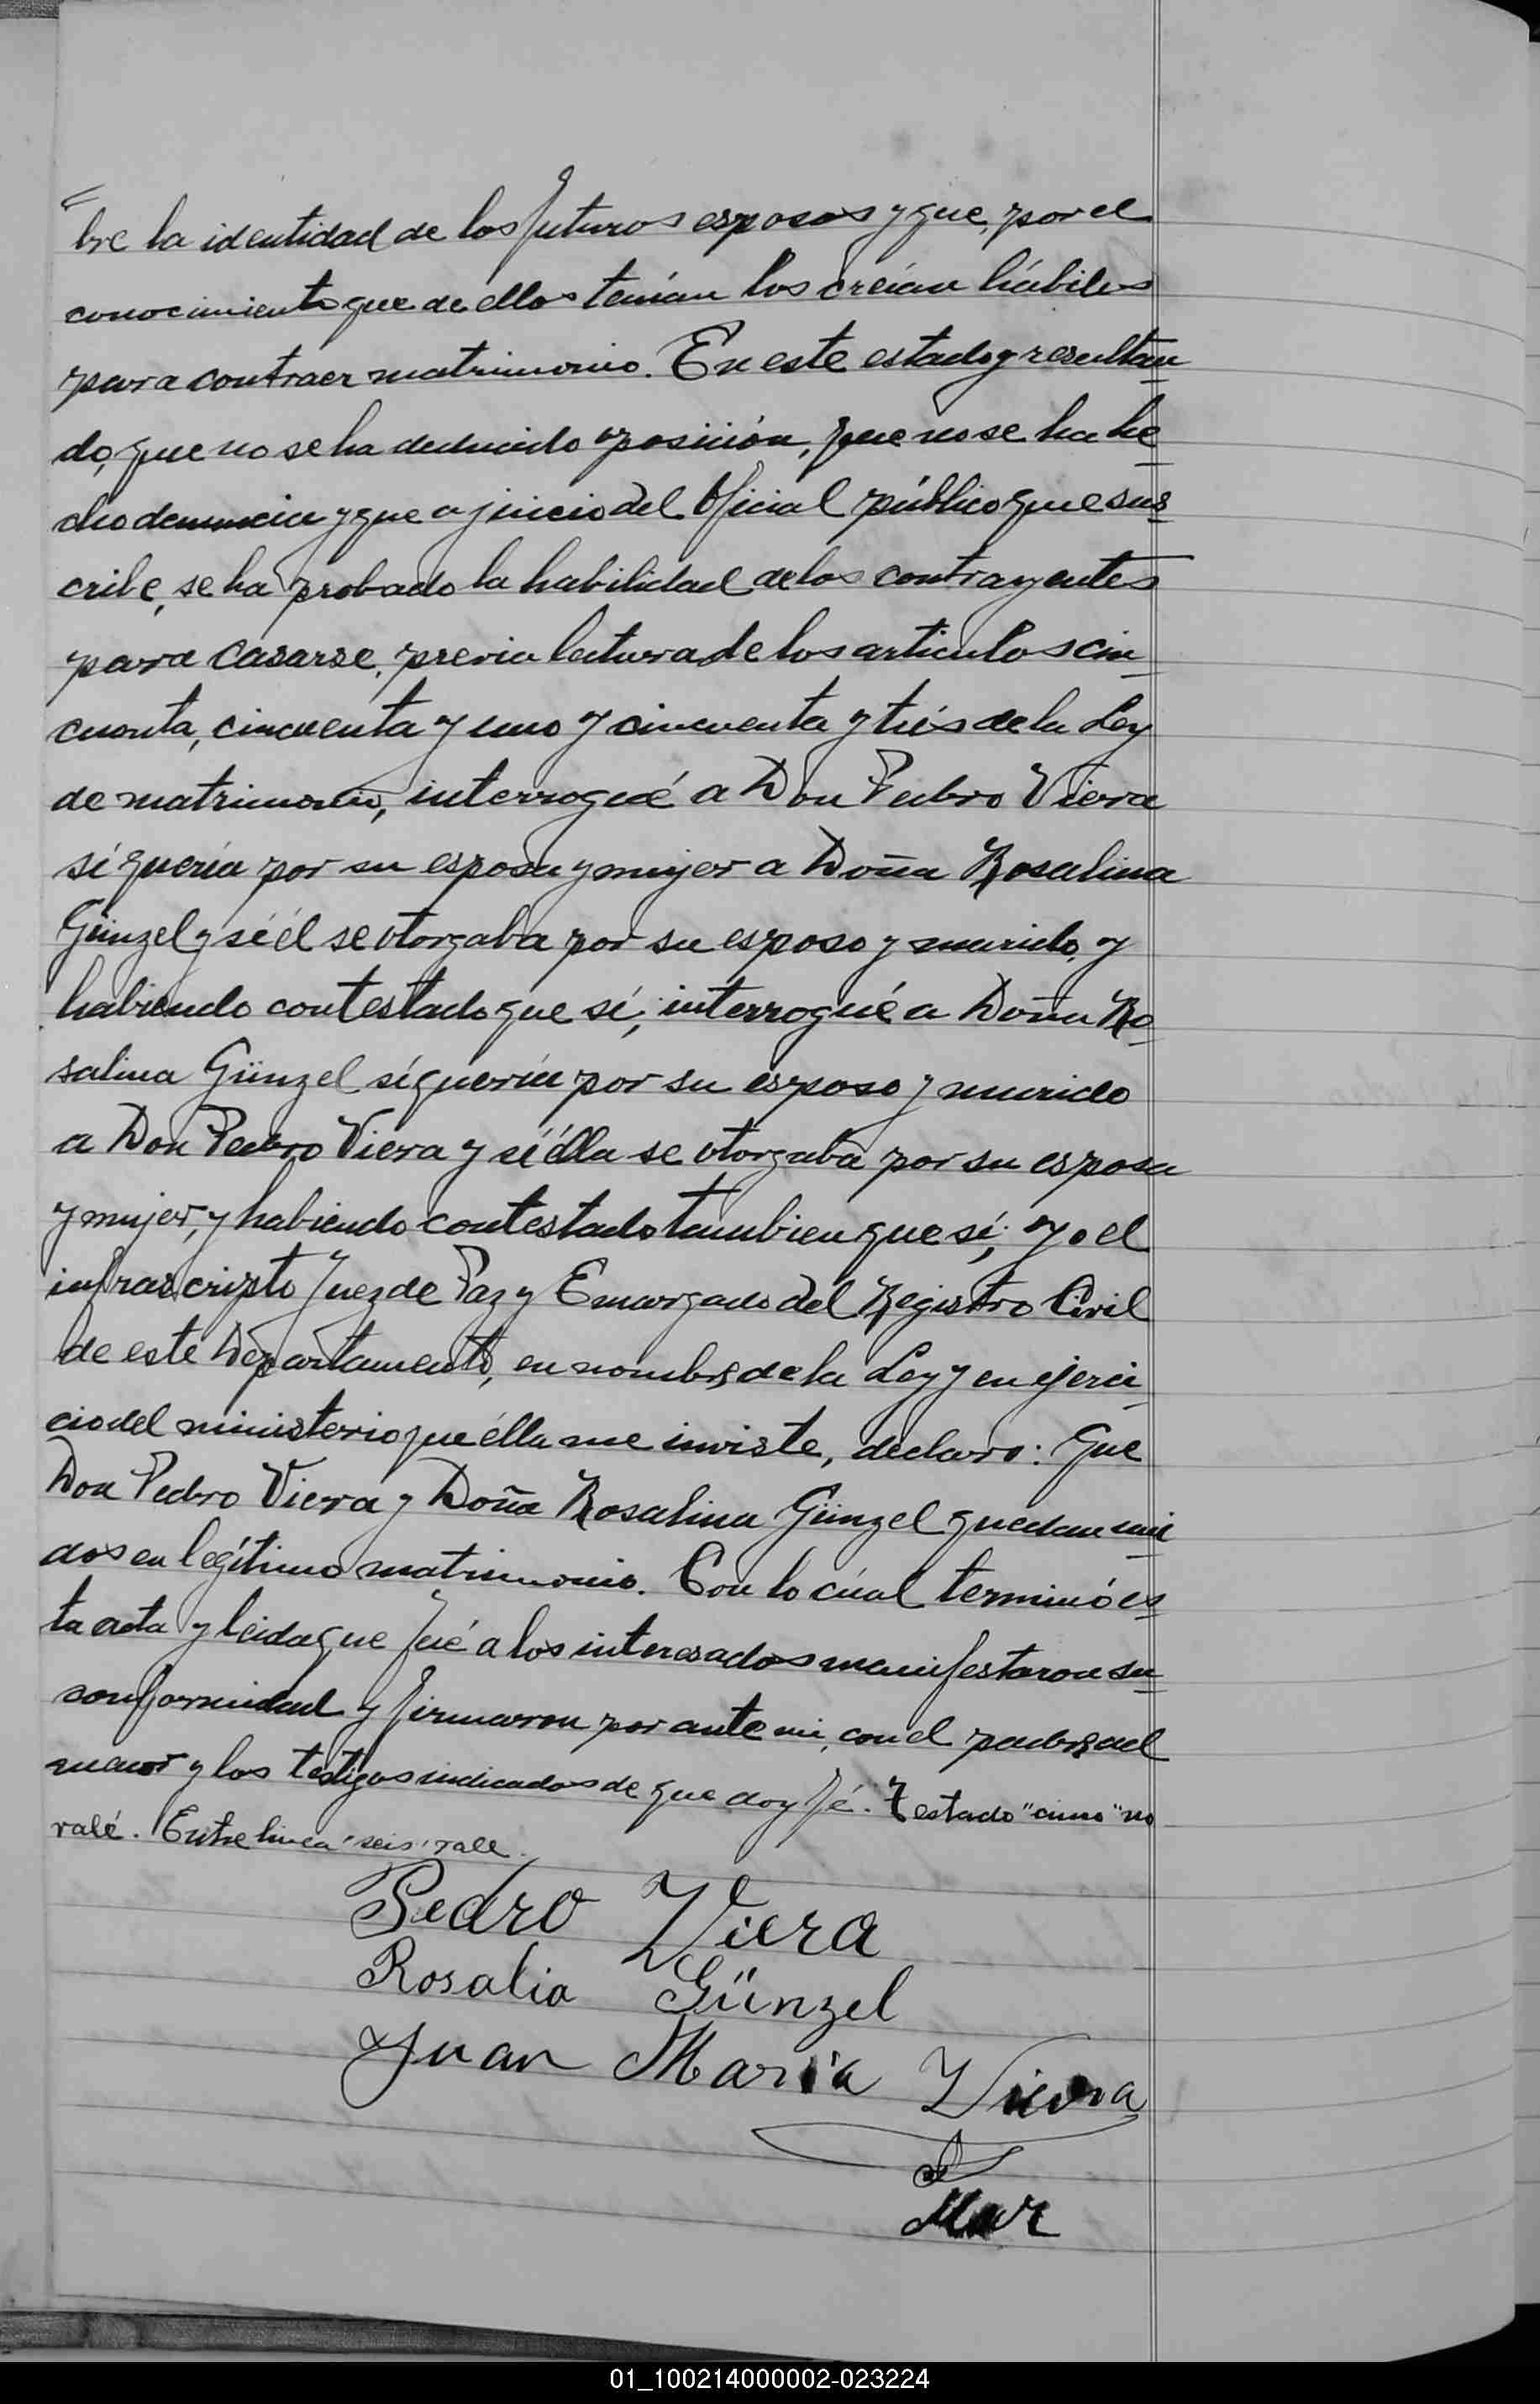 bre la identidad de los futuros esposos y que, por el
conocimiento que de ellos tenían los creían hábiles
para contraer matrimonio. En este estado y resultan
do, que no se ha deducido oposición, que no se ha he
cho denuncia y que a juicio del Oficial público que sus
cribe, se ha probado la habilidad de los contrayentes
para casarse, previa lectura de los articulos cin
cuenta, cincuenta y uno y cincuenta y trés de la Ley
de matrimonio, interrogué a Don Pedro Viera
sí quería por su esposa y mujer a Doña Rosalina
Günzel y sí él se otorgaba por su esposo y marido, y
habiendo contestado que sí, interrogué a Doña Ro
salina Günzel sí quería por su esposo y marido
a Don Pedro Viera y sí élla se otorgaba por su esposa
y mujer, y habiendo contestado tambien que sí, yo el
infrascripto Juez de Paz y Encargado del Registro Civil
de este Departamento, en nombre de la Ley y en ejerci
cio del ministerio que élla me inviste, declaro: Que
Don Pedro Viera y Doña Rosalina Günzel quedan uni
dos en legítimo matrimonio. Con lo cúal terminó es
ta acta y leida que fué a los interesados manifestaron su
conformidad y firmaron por ante mi, con el padre del
menor y los testigos indicados de que doy fé. Testado "cinco" no
valé. Entre linea "seis" vale.
Pedro Viera
Rosalia Günzel
Juan Maria Viera
01_100214000002-023224